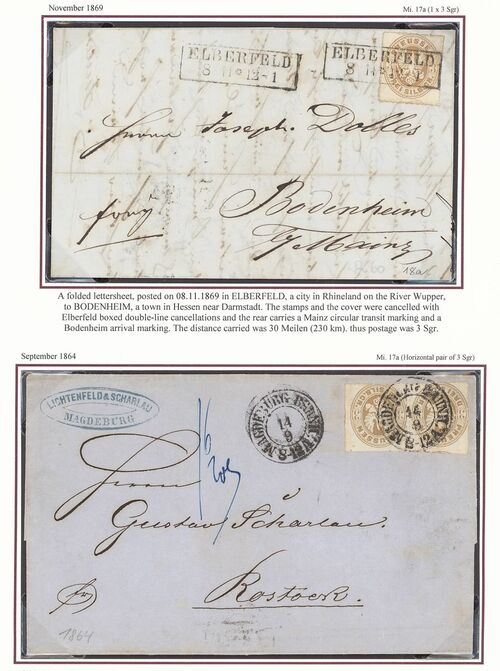 November 1869
Mi. 17a (1 x 3 Sgr)
ELBERFELD
8 11 12-1
ELBERFELD
8 11
PREUSSEN
DREI SILB
Herrn Joseph Dolles
franz
Bodenheim
b/Mainz
18a
A folded lettersheet, posted on 08.11.1869 in ELBERFELD, a city in Rhineland on the River Wupper,
to BODENHEIM, a town in Hessen near Darmstadt. The stamps and the cover were cancelled with
Elberfeld boxed double-line cancellations and the rear carries a Mainz circular transit marking and a
Bodenheim arrival marking. The distance carried was 30 Meilen (230 km). thus postage was 3 Sgr.
September 1864
Mi. 17a (Horizontal pair of 3 Sgr)
LICHTENFELD & SCHARLAU
MAGDEBURG
MAGDEBURG BAHNHF
14
9
MAGDEBURG BAHNHF
14
9
PREUSSEN
Herrn
Gustav Scharlau.
Rostock.
1864